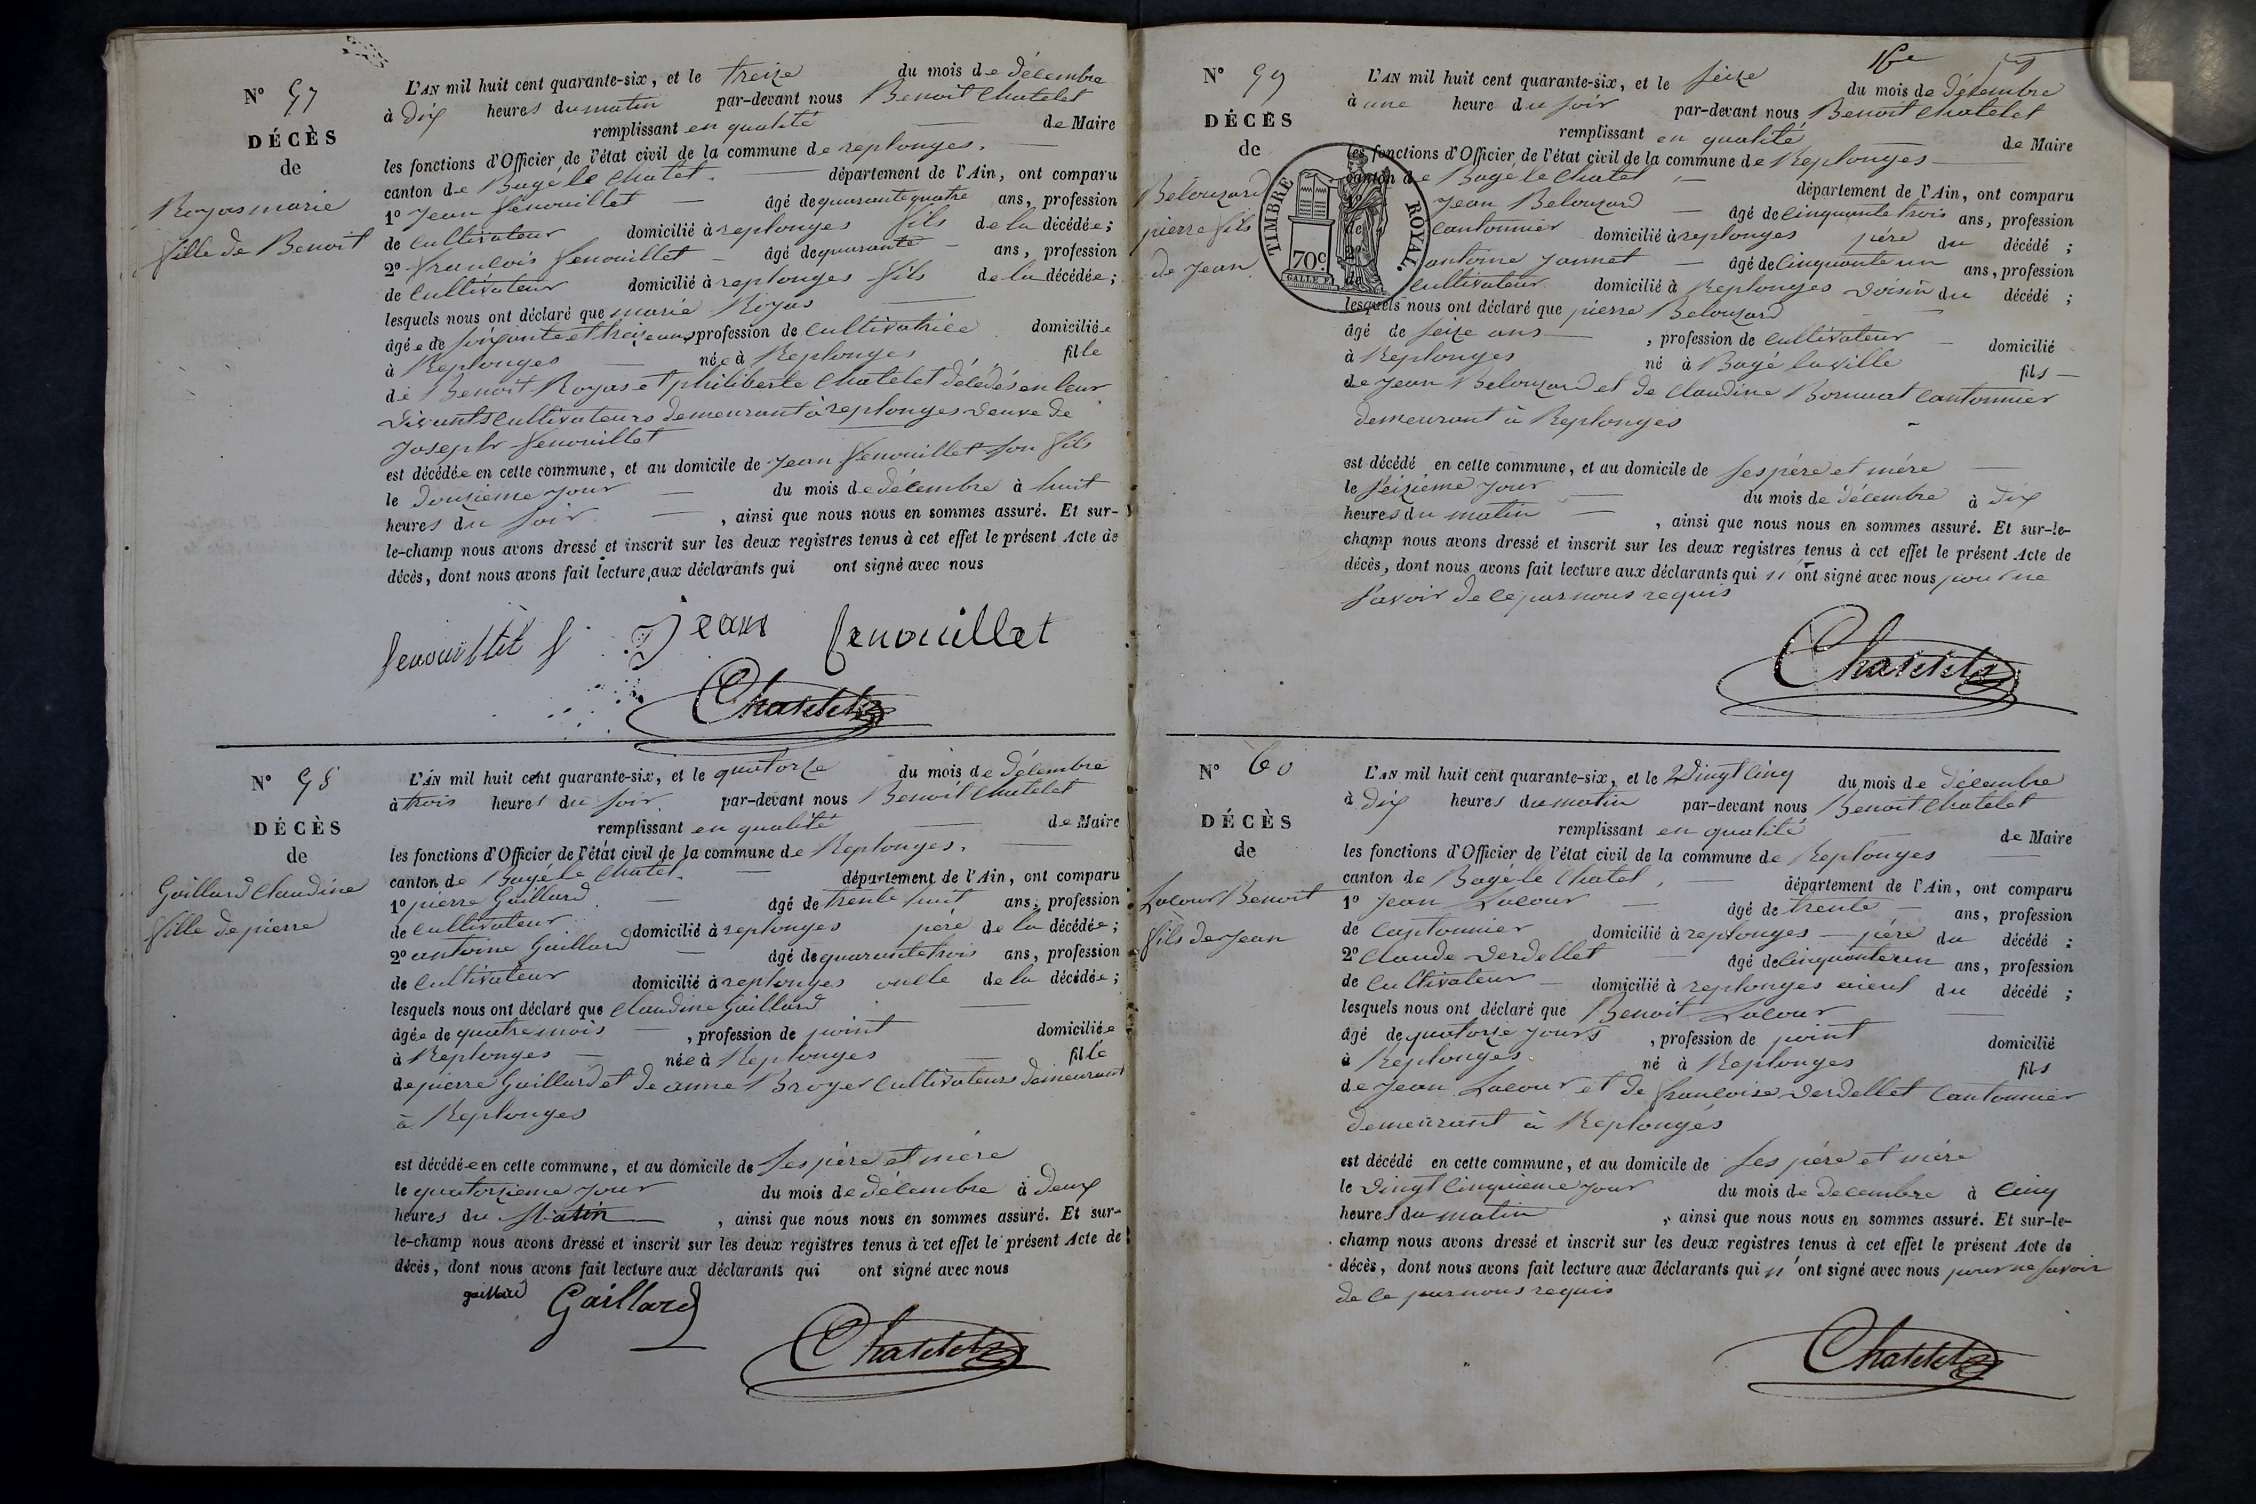 N° 57
DÉCÈS
de
Royas marie
fille de Benoit
L'AN mil huit cent quarante-six, et le treize du mois de décembre
à dix heures du matin par-devant nous Benoit Chatelet
remplissant en qualité de Maire
les fonctions d'Officier de l'état civil de la commune de replonges.
canton de Bagé le Chatel. département de l'Ain, ont comparu
1° Jean fenouillet âgé de quarante quatre ans, profession
de cultivateur domicilié à replonges fils de la décédée;
2° françois fenouillet âgé de quarante ans, profession
de cultivateur domicilié à replonges fils de la décédée;
lesquels nous ont déclaré que marie Royas
âgée de soixante et treize ans profession de cultivatrice domiciliée
à Replonges née à Replonges fille
de Benoit Royas et philiberte Chatelet décédés en leur
vivants cultivateurs demeurant à replonges veuve de
Joseph fenouillet
est décédée en cette commune, et au domicile de Jean fenouillet son fils
le douzieme jour du mois de décembre à huit
heures du soir, ainsi que nous nous en sommes assuré. Et sur-
le-champ nous avons dressé et inscrit sur les deux registres tenus à cet effet le présent Acte de
décès, dont nous avons fait lecture aux déclarants qui ont signé avec nous
fenouillet f Jean fenouillet
Chatelet
N° 58
DÉCÈS
de
Gaillard Claudine
fille de pierre
L'AN mil huit cent quarante-six, et le quatorze du mois de décembre
à trois heures du soir. par-devant nous Benoit Chatelet
remplissant en qualité de Maire
les fonctions d'Officier de l'état civil de la commune de Replonges.
canton de Bagé le Chatel. département de l'Ain, ont comparu
1° pierre Gaillard âgé de trente huit ans, profession
de cultivateur domicilié à replonges père de la décédée;
2° antoine Gaillard âgé de quarante trois ans, profession
de cultivateur domicilié à replonges oncle de la décédée;
lesquels nous ont déclaré que Claudine Gaillard
âgée de quatre mois, profession de point domiciliée
à Replonges née à Replonges fille
de pierre Gaillard et de anne Broyer cultivateurs demeurant
à Replonges
est décédée en cette commune, et au domicile de ses père et mére
le quatorzieme jour du mois de décembre à deux
heures du Matin, ainsi que nous nous en sommes assuré. Et sur-
le-champ nous avons dressé et inscrit sur les deux registres tenus à cet effet le présent Acte de
décès, dont nous avons fait lecture aux déclarants qui ont signé avec nous
gaillard Gaillard
Chatelet
16e
N° 59
DÉCÈS
de
Belouzard
pierre fils
de Jean
TIMBRE ROYAL.
70c
L'AN mil huit cent quarante-six, et le seize du mois de décembre
à une heure du soir par-devant nous Benoit Chatelet
remplissant en qualité de Maire
les fonctions d'Officier de l'état civil de la commune de Replonges
canton de Bagé le Chatel département de l'Ain, ont comparu
1° Jean Belouzard âgé de cinquante trois ans, profession
de cantonnier domicilié à replonges père du décédé;
2° antoine Jannet âgé de cinquante un ans, profession
de cultivateur domicilié à Replonges voisin du décédé;
lesquels nous ont déclaré que pierre Belouzard
âgé de seize ans, profession de cultivateur domicilié
à Replonges né à Bagé la ville fils
de Jean Belouzard et de claudine cantonnier
demeurant à Replonges
est décédé en cette commune, et au domicile de ses père et mére
le seizieme jour du mois de décembre à dix
heures du matin, ainsi que nous nous en sommes assuré. Et sur-le-
champ nous avons dressé et inscrit sur les deux registres tenus à cet effet le présent Acte de
décès, dont nous avons fait lecture aux déclarants qui n'ont signé avec nous pour ne
savoir de ce par nous requis
Chatelet
N° 60
DÉCÈS
de
Lacour Benoit
fils de Jean
L'AN mil huit cent quarante-six, et le vingt cinq du mois de décembre
à dix heures du matin par-devant nous Benoit Chatelet
remplissant en qualité de Maire
les fonctions d'Officier de l'état civil de la commune de Replonges
canton de Bagé le Chatel, département de l'Ain, ont comparu
1° Jean Lacour âgé de trente ans, profession
de cantonnier domicilié à replonges père du décédé;
2° claude Verdellet âgé de cinquante un ans, profession
de cultivateur domicilié à replonges aieul du décédé;
lesquels nous ont déclaré que Benoit Lacour
âgé de quatorze jours, profession de point domicilié
à Replonges né à Replonges fils
de Jean Lacour et de françoise Verdellet Cantonnier
demeurant à Replonges
est décédé en cette commune, et au domicile de ses père et mére
le vingt cinquième jour du mois de decembre à cinq
heures du matin, ainsi que nous nous en sommes assuré. Et sur-le-
champ nous avons dressé et inscrit sur les deux registres tenus à cet effet le présent Acte de
décès, dont nous avons fait lecture aux déclarants qui n'ont signé avec nous pour ne savoir
de ce par nous requis
Chatelet